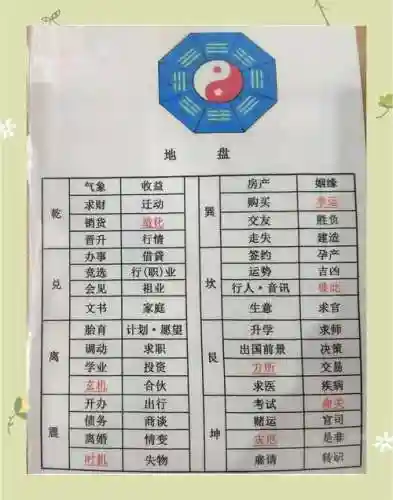 地 盘
乾 气象 收益 巽 房产 姻缘
求财 迁动 购买 幸运
销货 造化 交友 胜负
晋升 行情 走失 建造
兑 办事 借贷 坎 签约 孕产
竞选 行(职)业 运势 吉凶
会见 祖业 行人·音讯 彼此
文书 家庭 生意 求官
离 胎育 计划·愿望 艮 升学 求师
调动 求职 出国前景 决策
学业 投资 方所 交易
玄机 合伙 求医 疾病
震 开办 出行 坤 考试 命关
债务 商谈 赌运 官司
离婚 情变 灾厄 是非
时机 失物 邀请 转识